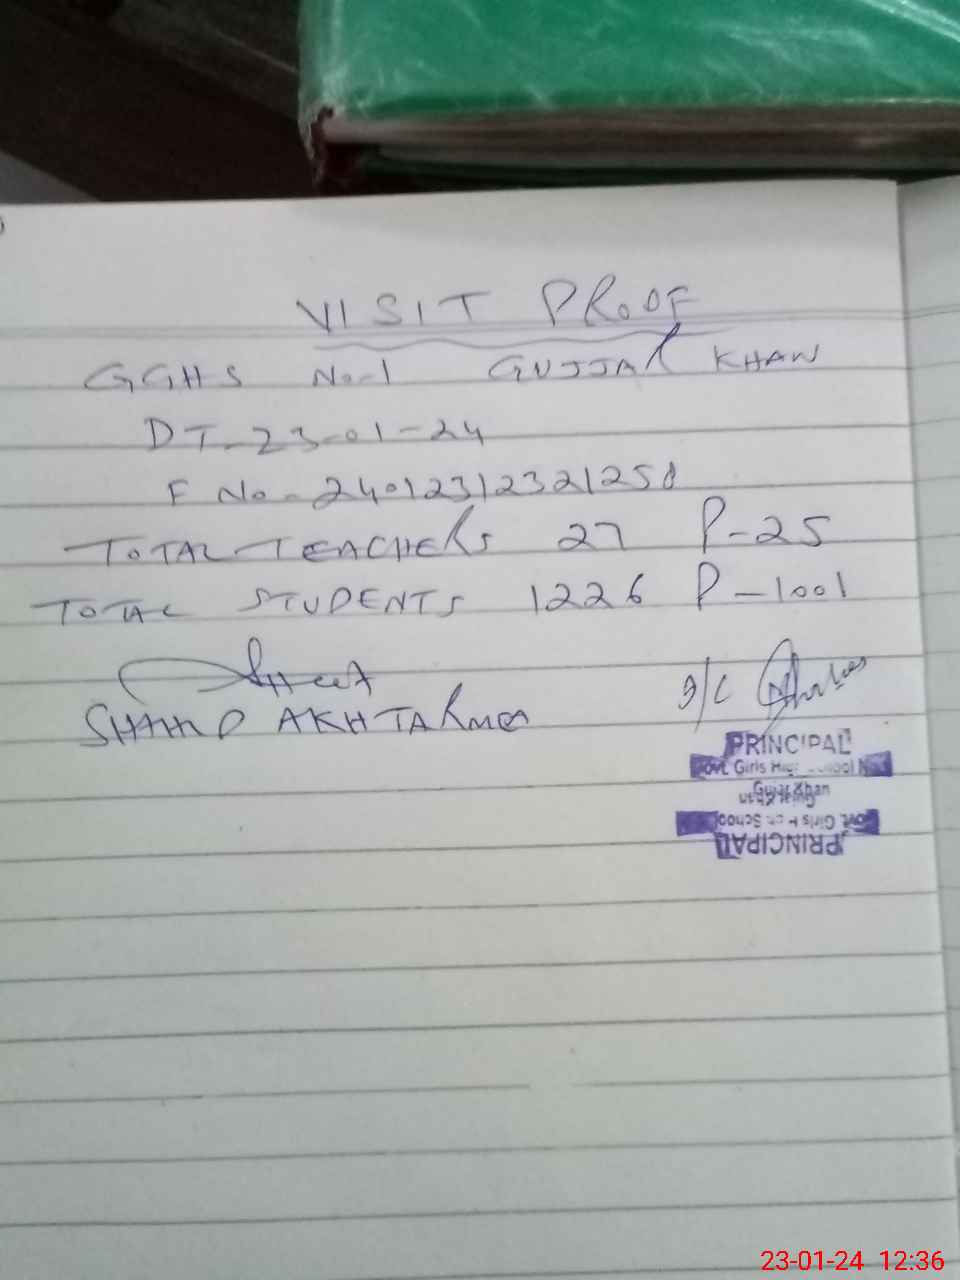 VISIT PROOF
GGHS No-1 GUJJAR KHAN
DT-23-01-24
F No-2401231232125
TOTAL TEACHERS 27 P-25
TOTAL STUDENTS 1226 P-1001
AKHTAR MEA
I/C
PRINCIPAL
Govt. Girls High School No.1
Gujar Khan
Gujar Khan
Govt. Girls High School
PRINCIPAL
23-01-24 12:36